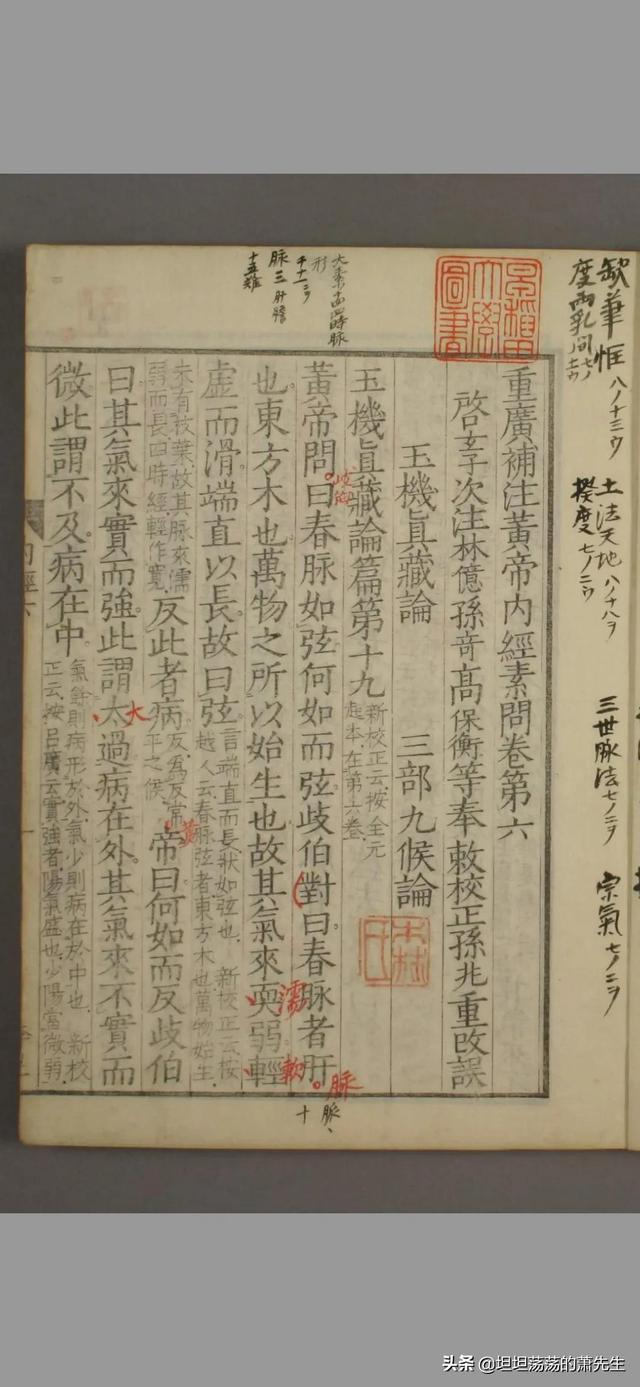 重廣補注黃帝內經素問卷第六
啓玄子次注林億孫奇高保衡等奉敕校正孫兆重改誤
玉機眞藏論 三部九候論
玉機眞藏論篇第十九 新校正云按全元
起本在第六卷
黃帝問曰春脉如弦何如而弦歧伯對曰春脉者肝
也東方木也萬物之所以始生也故其氣來耎弱輕
虛而滑端直以長故曰弦 言端直而長狀如弦也 新校正云按
越人云春脉弦者東方木也萬物始生
未有枝葉故其脉來濡
弱而長四時經輕作寬 反此者病 反爲反常
平之候 帝曰何如而反歧伯
曰其氣來實而強此謂太過病在外其氣來不實而
微此謂不及病在中 氣餘則病形於外氣少則病在於中也 新校
正云按呂廣云實強者陽氣盛也少陽當微弱
內經六
濡
軟
脉
大
脉
十
脉三 肝
十五難
缺筆 恆 八ノ十三ウ
度兩乳间 七ノ
土法天地 八ノ十八ヲ
揆度 七ノ二ウ
三世脉法 七ノ二ヲ
宗氣 七ノ二ヲ
頭条 @坦坦荡荡的萧先生